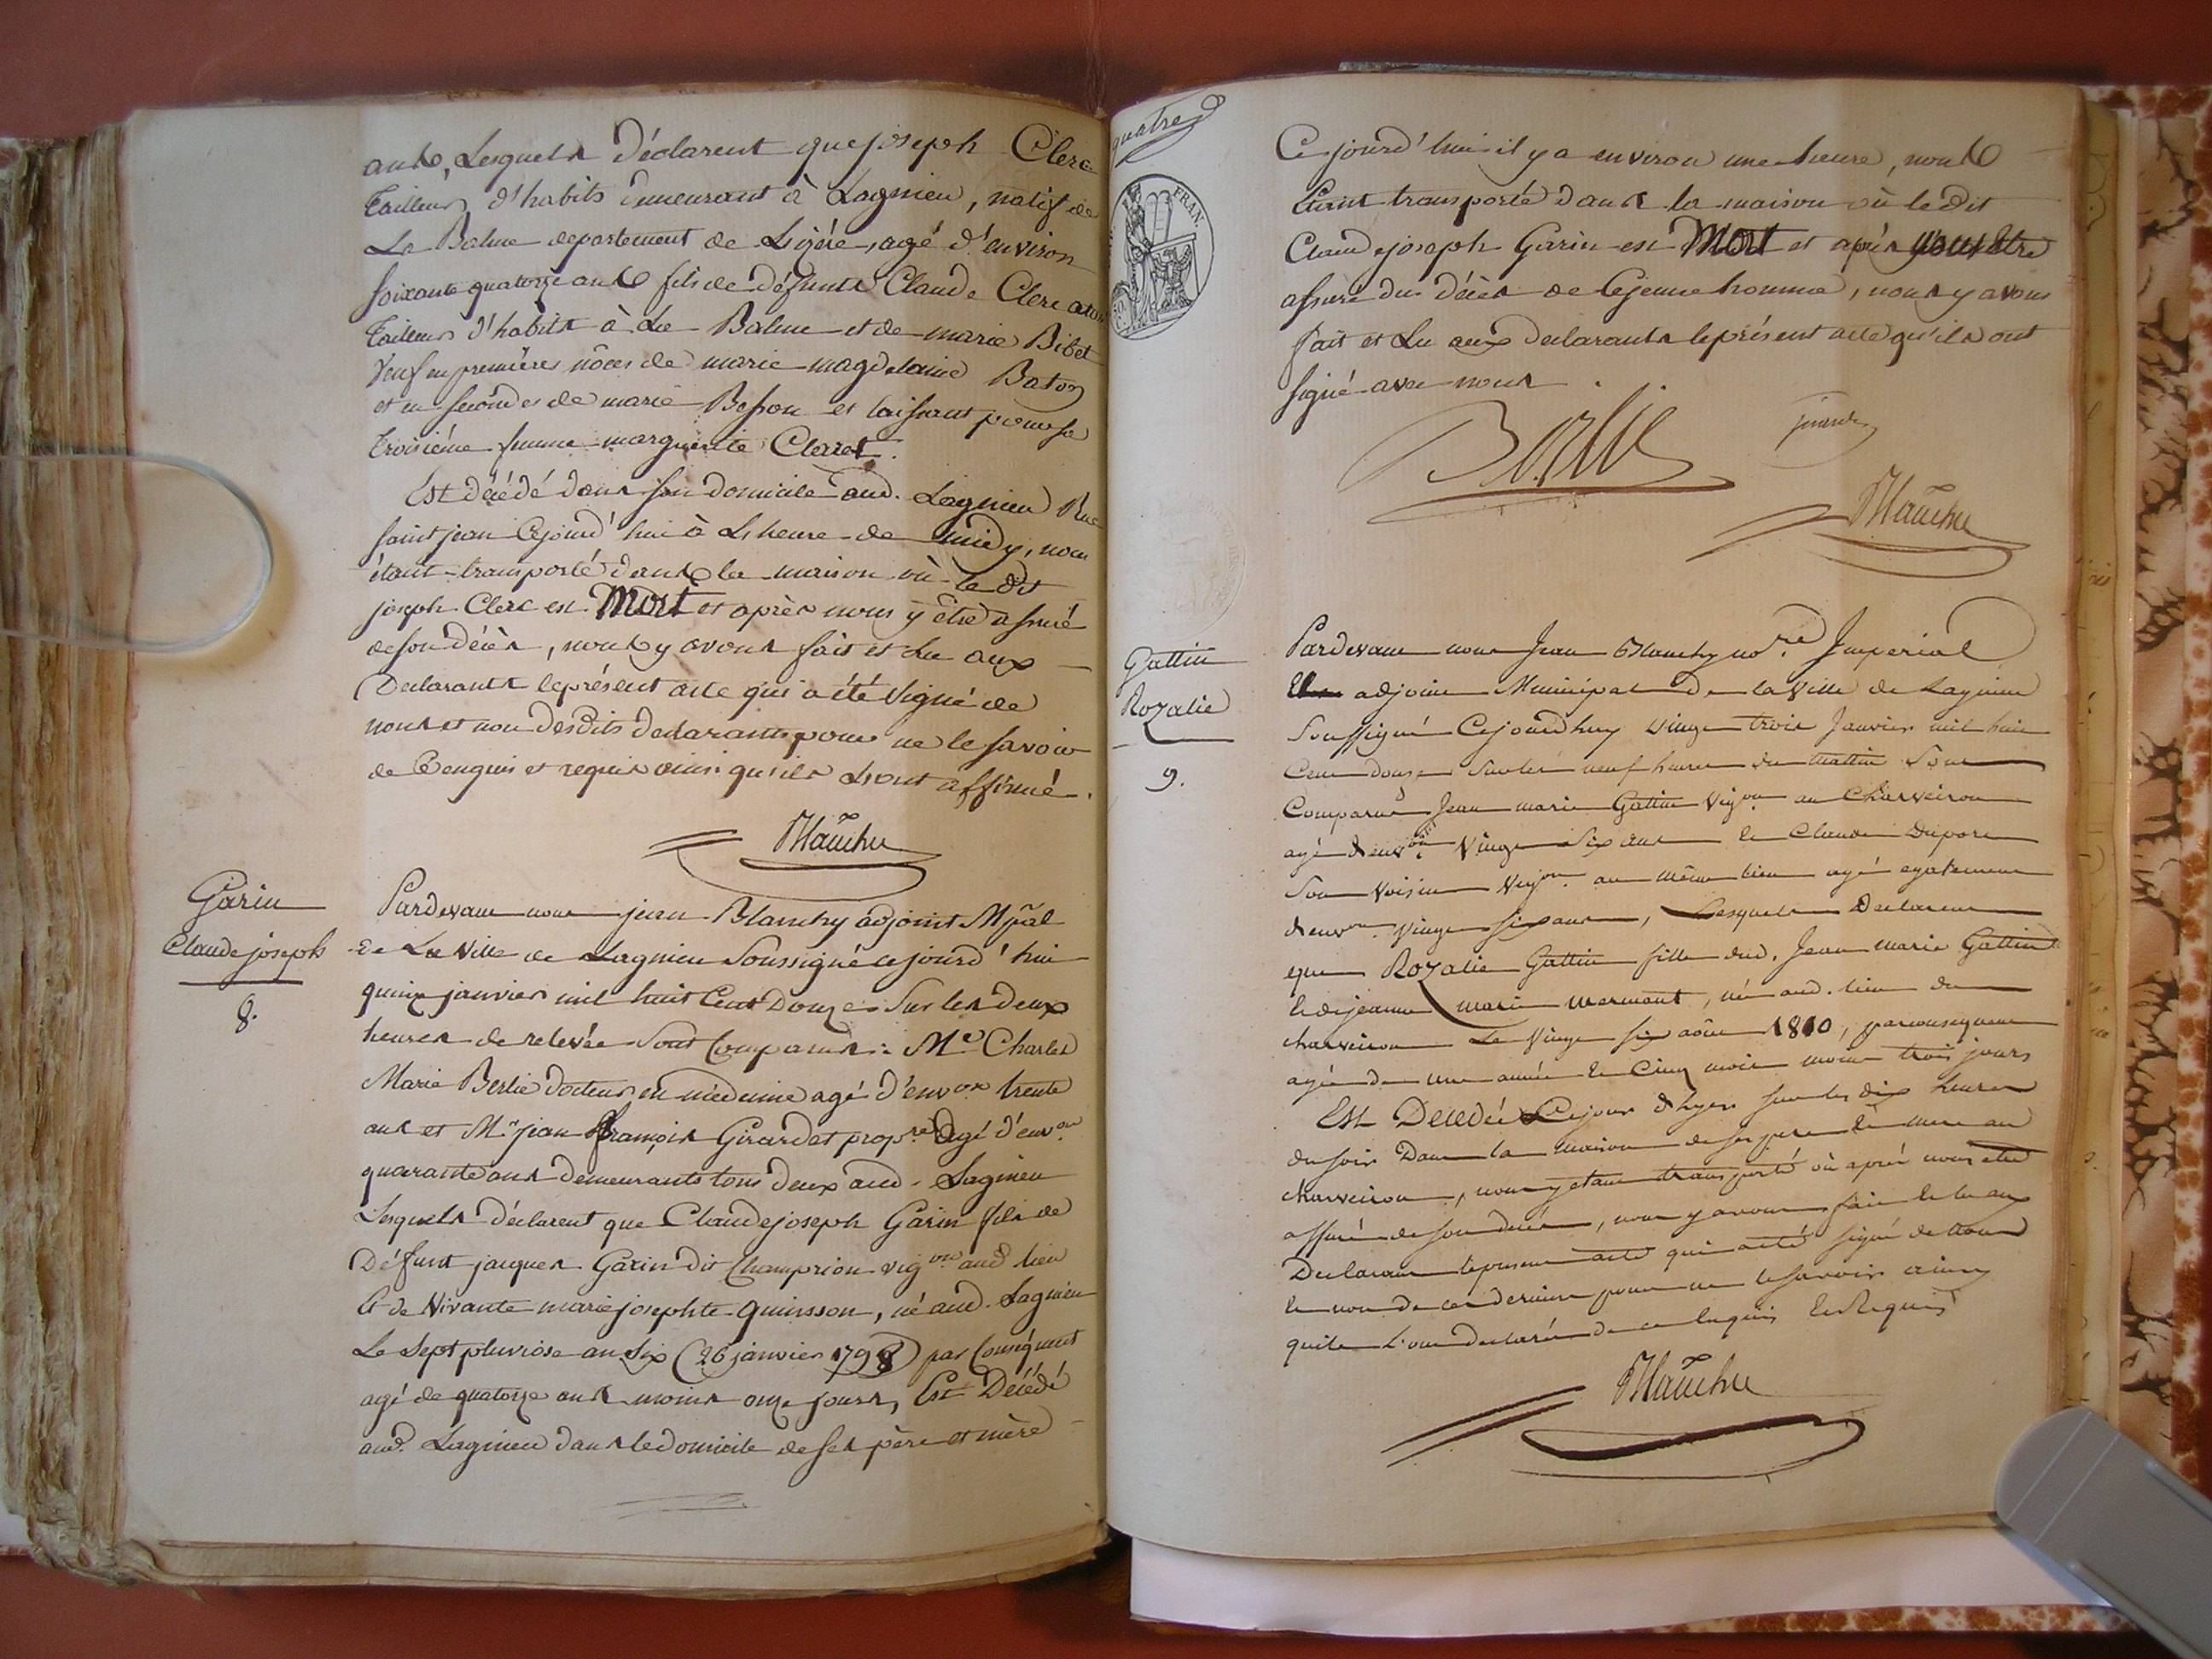 ans, Lesquels Déclarent que joseph Clerc
Tailleur d'habits demeurant à Lagnieu, natif de
La Balme departement de Lizére, agé d'environ
soixante quatorze ans fils de défunts Claude Clerc
Tailleur d'habits à La Balme et de marie Bibet
Veuf en premières nôces de marie magdelaine Baton
et en secondes de marie Besson et laissant pour sa
troisiéme femme marguerite Claret.
Est décédé dans son domicile aud. Lagnieu Rue
saint jean Cejourd'hui à L'heure de midy, nous
étant transporté dans la maison où le dit
joseph Clerc est Mort et après nous y être assuré
de son décès, nous y avons fait et Lu aux
Déclarants le présent acte qui a été signé de
nous et non desdits declarants pour ne le savoir
de ce enquis et requis ainsi qu'ils L'ont affirmé.
Blanchy
Garin
Claude joseph
8.
Pardevant nous jean Blanchy adjoint Mpal
de La Ville de Lagnieu Soussigné cejourd'hui
quinze janvier mil huit Cent Douze Sur les deux
heures de relevée Sont Comparus: Mr Charles
Marie Berlie docteur en médecine agé d'envon trente
ans et Mr jean françois Girardet propre agé d'envon
quarante ans demeurants tous deux aud. Lagnieu
Lesquels déclarent que Claude joseph Garin fils de
Défunt jacques Garin dit Champrion vigon aud lieu
et de Vivante marie josephte quinsson, né aud. Lagnieu
Le sept pluviose an six (26 janvier 1798) par Conséquent
agé de quatorze ans moins onze jours, Est Décédé
aud. Lagnieu dans le domicile de ses père et mère
quatre
FRAN.
Ce jourd'hui il y a environ une heure, nous
étant transporté dans la maison où le dit
Claude joseph Garin est Mort et après nous être
assuré du décès de Ce jeune homme, nous y avons
fait et Lu aux declarants le présent acte qu'ils ont
signé avec nous.
Berlie
Blanchy
Gattin
Rozalie
9.
Pardevant nous Jean Blanchy nore Imperial
adjoint Municipal de la Ville de Lagnieu
Soussigné Cejourdhuy vingt trois Janvier mil huit
Cent douze sur les neuf heures du mattin Sont
Comparus Jean marie Gattin Vigon au Charveiron
agé denvon Vingt Six ans et Claude Dupore
Son Voisin Vigon au même lieu agé egalement
denvon Vingt six ans, Lesquels Declarent
que Rozalie Gattin fille dud. Jean marie Gattin
et de jeanne marie mermont, née aud. lieu du
charveiron Le Vingt six août 1810, par consequent
agée de une année et Cinq mois moins trois jours
Est Decedée Le jour d'hyer sur les dix heures
du soir Dans la maison de ses pere et mere au
charveiron, nous y etant transporté où aprés nous etre
assuré de son decés, nous y avons fait et lu aux
Declarants le present acte qui a été signé de Nous
et non de ces derniers pour ne le savoir ainsy
quils L'ont declaré de ce Enquis et Requis
Blanchy